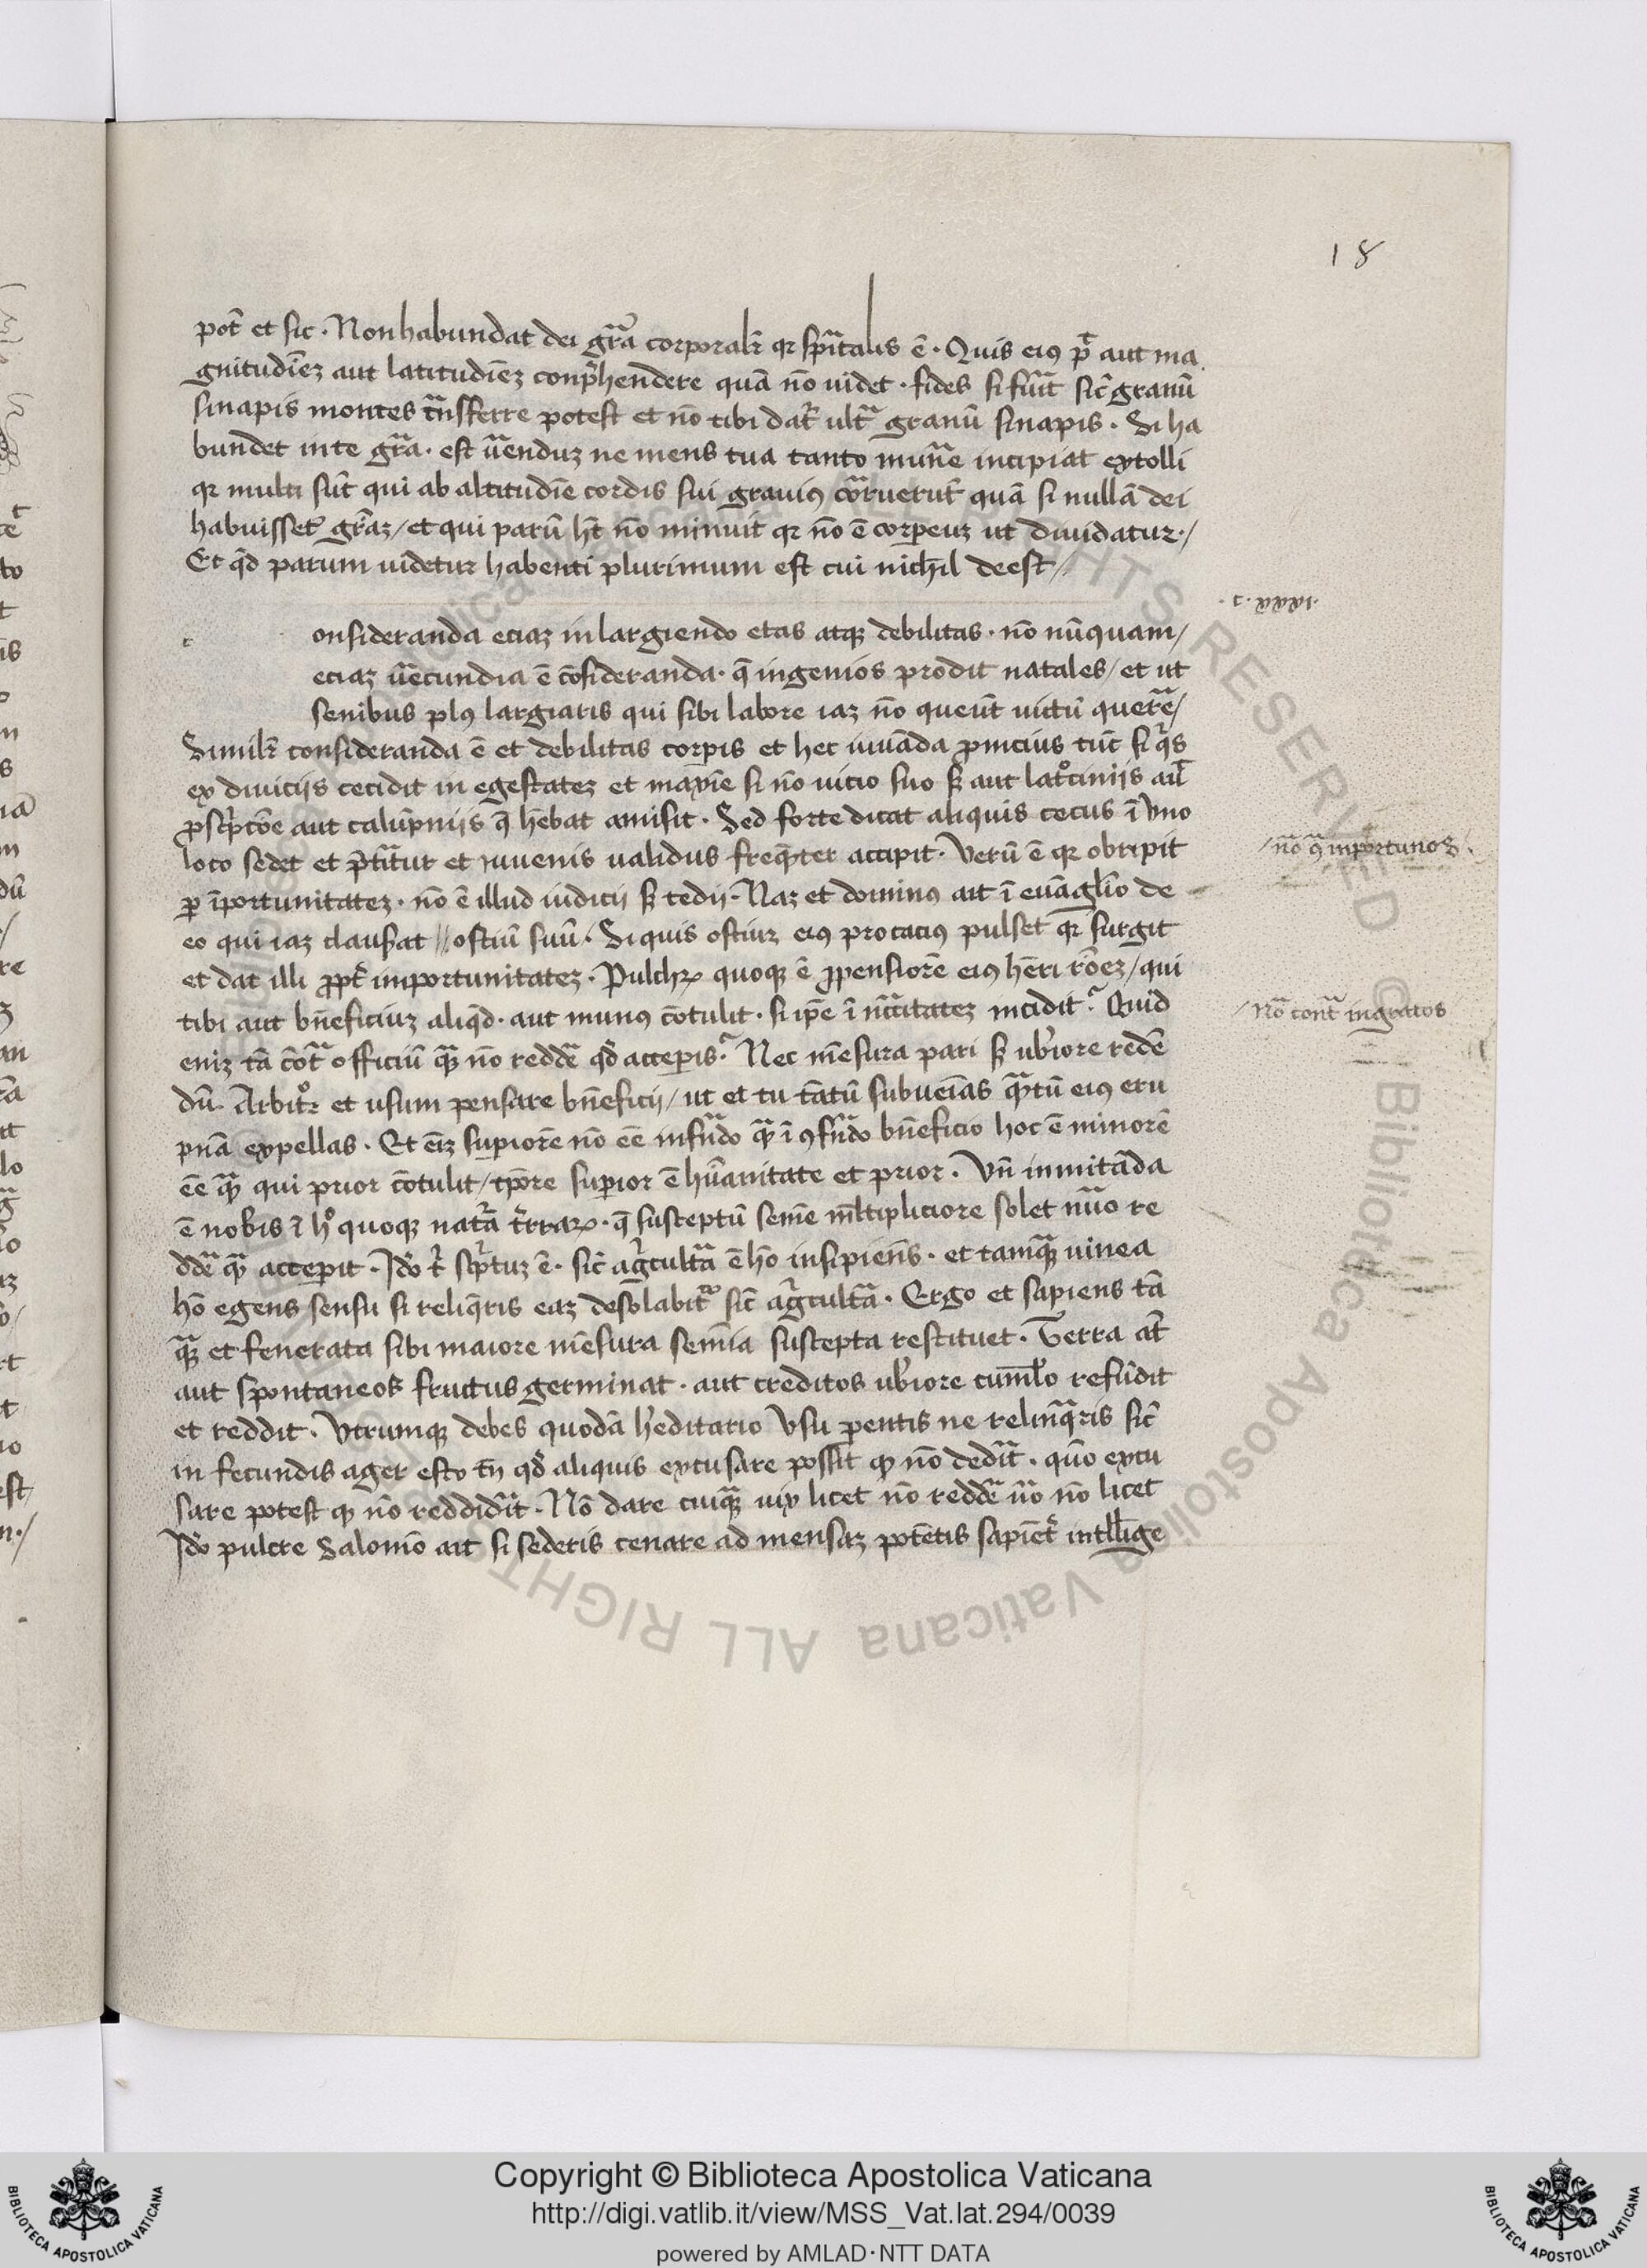 18
pot̃ et sic · Non habundat dei gr̃a corporalr̃ qr sp̃italis ẽ · Quis eiꝰ pt̃ aut ma
gnitudiẽꝫ aut latitudiẽꝫ conp̃hendere quã nõ uidet · fides si fũit sic̃ granũ
sinapis montes t̃nsferre potest et nõ tibi dat̃ ult̃ granũ sinapis · Si ha
bundet in te gr̃a · est ũenduꝫ ne mens tua tanto mun̄e incipiat extolli
qr multi sũt qui ab altitudiẽ cordis sui grauiꝰ cõruerũt quã si nullã dei
habuisset̃ gr̃aꝫ / et qui parũ ht̃ nõ minuit qr nõ ẽ corꝑeuꝫ ut diuidatur · /
Et qd̃ parum uidetur habenti plurimum est cui nichil deest /
·ıxxx· c ·
c onsideranda eciaꝫ in largiendo etas atqꝫ debilitas · nõ nũquam /
eciaꝫ ũecundia ẽ cõsideranda · q̃ ingenios prodit natales / et ut
senibus plꝰ largiaris qui sibi labore iaꝫ nõ queũt uictũ querẽ /
Similr̃ consideranda ẽ et debilitas corꝑis et hec iuuãda ꝓmcius tũc si q̃s
ex diuiciis cecidit in egestateꝫ et maxĩe si nõ uicio suo sꝫ aut lat°ciniis aut̃
ꝓsc̃pc̃oe aut calũpniis q̃ hẽbat amisit · Sed forte dicat aliquis cecus ĩ vno
loco sedet et p̃t̃itur et iuuenis ualidus freq̃nter accipit · Verũ ẽ qr obripit
ꝑ ĩportunitateꝫ · nõ ẽ illud iudicii sꝫ tedii · Naꝫ et dominꝰ ait ĩ euãgl̃io de
nõ ꝯ̃ inportunos ·
eo qui iaꝫ clauserat // ostiũ suũ · Si quis ostiuꝫ eiꝰ procaciꝰ pulset qr̃ surgit
et dat illi ꝓpt̃ importunitateꝫ · Pulchꝝ quoqꝫ ẽ ꝓpensiorẽ eiꝰ hẽri rõeꝫ / qui
tibi aut bñeficiuꝫ aliqd̃ · aut munꝰ cõtulit · si ip̃e ĩ nc̃citateꝫ incidit ? Quid
Nõ cont̃ ingratos
eniꝫ tã cõt̃ officiũ qꝫ̃ nõ redd̃e qd̃ acceperis ? Nec mẽsura pari sꝫ ub̃iore redẽ
dũ · Arbit°r et usum pensare bñeficii / ut et tu tãtũ subueĩas qꝫ̃tũ eiꝰ eru
pnã expellas · Et eĩꝫ suꝑiorẽ nõ eẽ inf̃ndo qꝫ̃ ĩ ꝯf̃ndo bñeficio hoc ẽ minorẽ
eẽ qꝫ̃ qui prior cõtulit / tꝑõre suꝑior ẽ hũanitate et prior · Vñ inmitãda
ẽ nob̃is ĩ h° quoqꝫ nat̃a t̃rraꝝ · q̃ susceptũ semẽ ml̃tipliciore solet nũo re
dd̃e qꝫ̃ accepit · Id̃o t̃ sc̃ptuꝫ ẽ · sic̃ ag̃cult̃a ẽ hõ insipiens · et tamqꝫ̃ uinea
hõ egens sensu si reliq̃ris eaꝫ desolabit̃ sic̃ ag̃cult̃a · Ergo et sapiens tã
qꝫ̃ et fenerata sibi maiore mẽsura semĩa suscepta restituet · Terra at̃
aut spontaneos fructus germinat · aut creditos ub̃iore cuml̃o refũdit
et reddit · Vtrumqꝫ debes quodã h̃editario vsu ꝑentis ne relinq̃ris sic̃
in fecundis ager esto tñ qd̃ aliquis excusare possit ꝙ nõ dedit̃ · quõ excu
sare potest ꝙ nõ reddidit̃ · Nõ dare cuiqꝫ̃ uix licet nõ redd̃e ũo nõ licet
Id̃o pulcre Salomõ ait si sederis cenare ad mensaꝫ potẽtis sapiẽt̃ intll̃ige
Copyright © Biblioteca Apostolica Vaticana
http://digi.vatlib.it/view/MSS_Vat.lat.294/0039
powered by AMLAD·NTT DATA
BIBLIOTECA APOSTOLICA VATICANA
BIBLIOTECA APOSTOLICA VATICANA